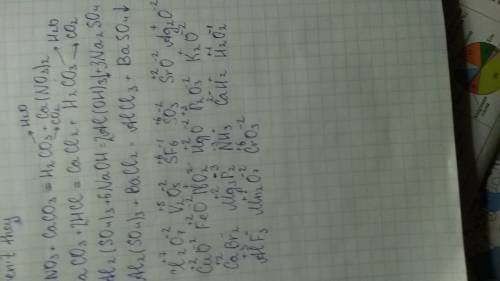 en't they
NO3 + CaCO3 = H2CO3 + Ca(NO3)2
→H2O
→CO2
aCO3 + 2HCl = CaCl2 + H2CO3 → H2O
→ CO2
Al2(SO4)3 + 6NaOH = 2Al(OH)3↓ + 3Na2SO4
Al2(SO4)3 + BaCl2 = AlCl3 + BaSO4↓
+7 -2 +5 -2 +6 -1 +6 -2 +2 -2 -2
2O7 V2O5 SF6 SO3 SrO Ag2O
CuO FeO NO2 HgO P2O3 K2O
CaBr2 Mg3P2 NH3 CaH2 H2O2
AlF3 Mn2O7 CrO3